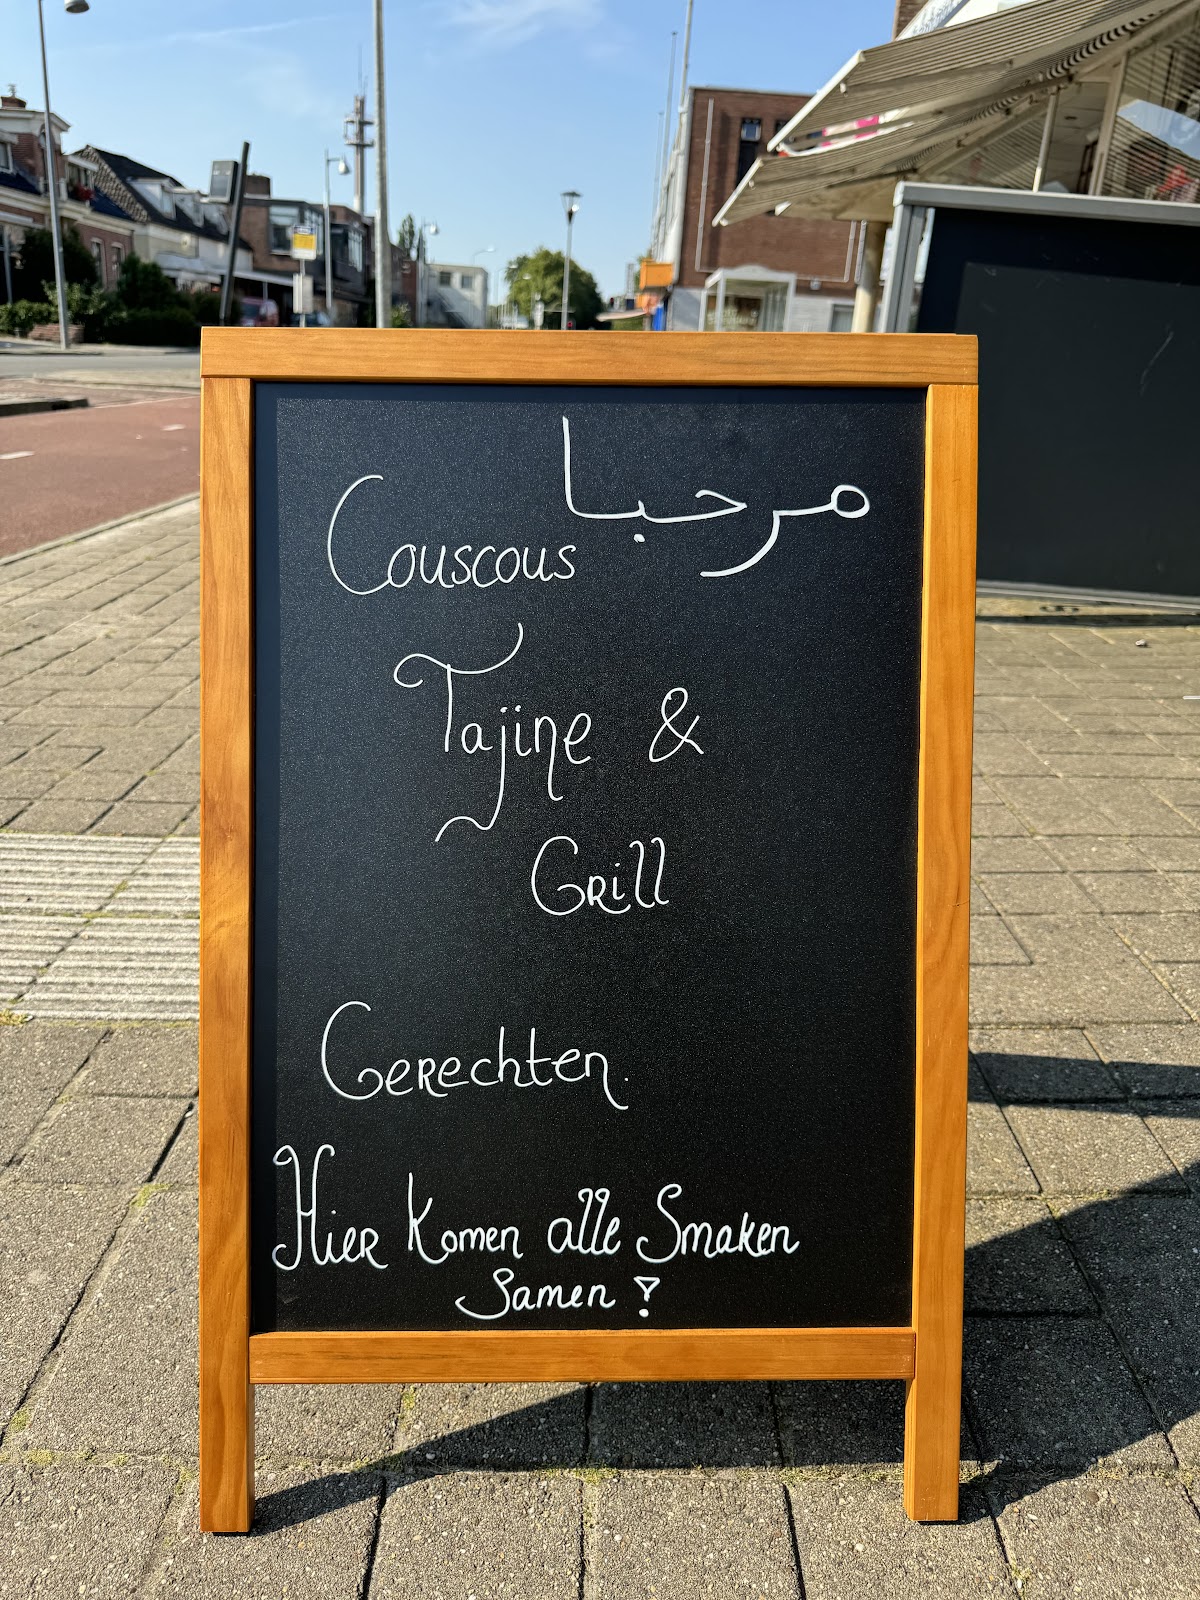 مرحبا
Couscous
Tajine &
Grill
Gerechten.
Hier Komen alle Smaken
Samen !